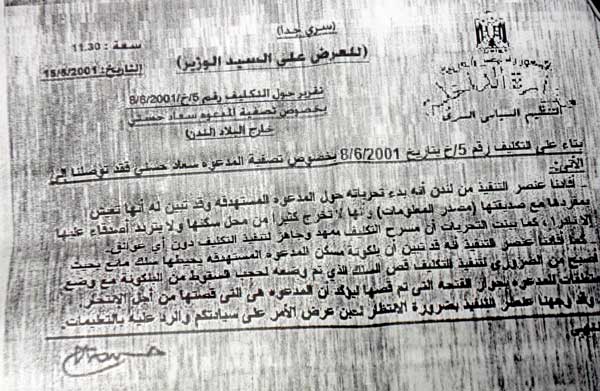 (سري جداً)
(للعرض على السيد الوزير)
سعة : 11.30
التاريخ: 15/6/2001
التنظيم السياسي السري
تقرير حول التكليف رقم 5/خ/8/6/2001
بخصوص تصفية المدعوه سعاد حسني
خارج البلاد (لندن)
بناء على التكليف رقم 5/خ بتاريخ 8/6/2001 بخصوص تصفية المدعوه سعاد حسني فقد توصلنا إلى
الآتي:
- أفادنا عنصر التنفيذ من لندن أنه بدء تحرياته حول المدعوه المستهدفه وقد تبين له أنها تعيش
بمفردها مع صديقتها (مصدر المعلومات) وأنها لا تخرج كثيرا من محل سكنها ولا يتردد أصدقاء عليها
الا نادرا، كما بينت التحريات أن مسرح التكليف ممهد وجاهز لتنفيذ التكليف دون أي عوائق.
- كما أفادنا عنصر التنفيذ أنه قد تبين أن بلكونة مسكن المدعوه المستهدفه يحيطها سلك مانع بحيث
أصبح من الضروري لتنفيذ التكليف قص السلك الذي تم وضعه لحجب السقوط من البلكونة مع وضع
متعلقات للمدعوه بجوار الفتحه التى تم قصها ليؤكد أن المدعوه هى التى قصتها من أجل الانتحار.
وقد وجهنا عنصر التنفيذ بضرورة الانتظار لحين عرض الأمر على سيادتكم والرد عليه بالتعليمات.